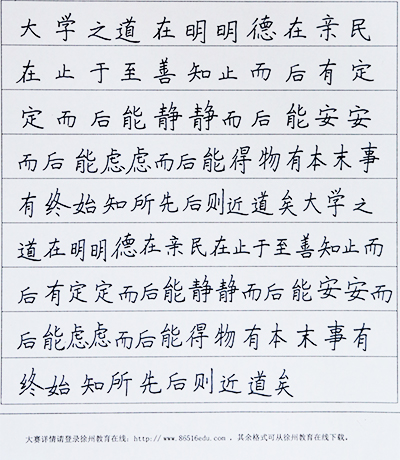 大学之道在明明德在亲民
在止于至善知止而后有定
定而后能静静而后能安安
而后能虑虑而后能得物有本末事
有终始知所先后则近道矣大学之
道在明明德在亲民在止于至善知止而
后有定定而后能静静而后能安安而
后能虑虑而后能得物有本末事有
终始知所先后则近道矣
大赛详情请登录徐州教育在线：http://www.86516edu.com 。其余格式可从徐州教育在线下载。